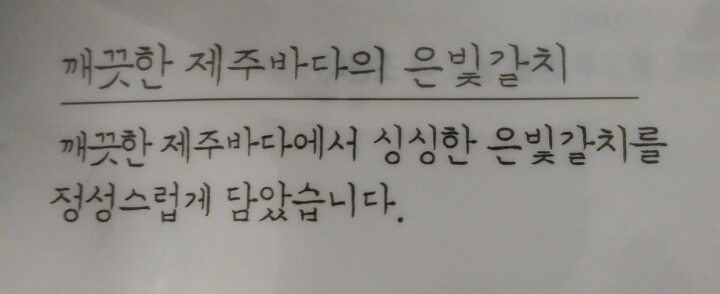 깨끗한 제주바다의 은빛갈치
깨끗한 제주바다에서 싱싱한 은빛갈치를
정성스럽게 담았습니다.